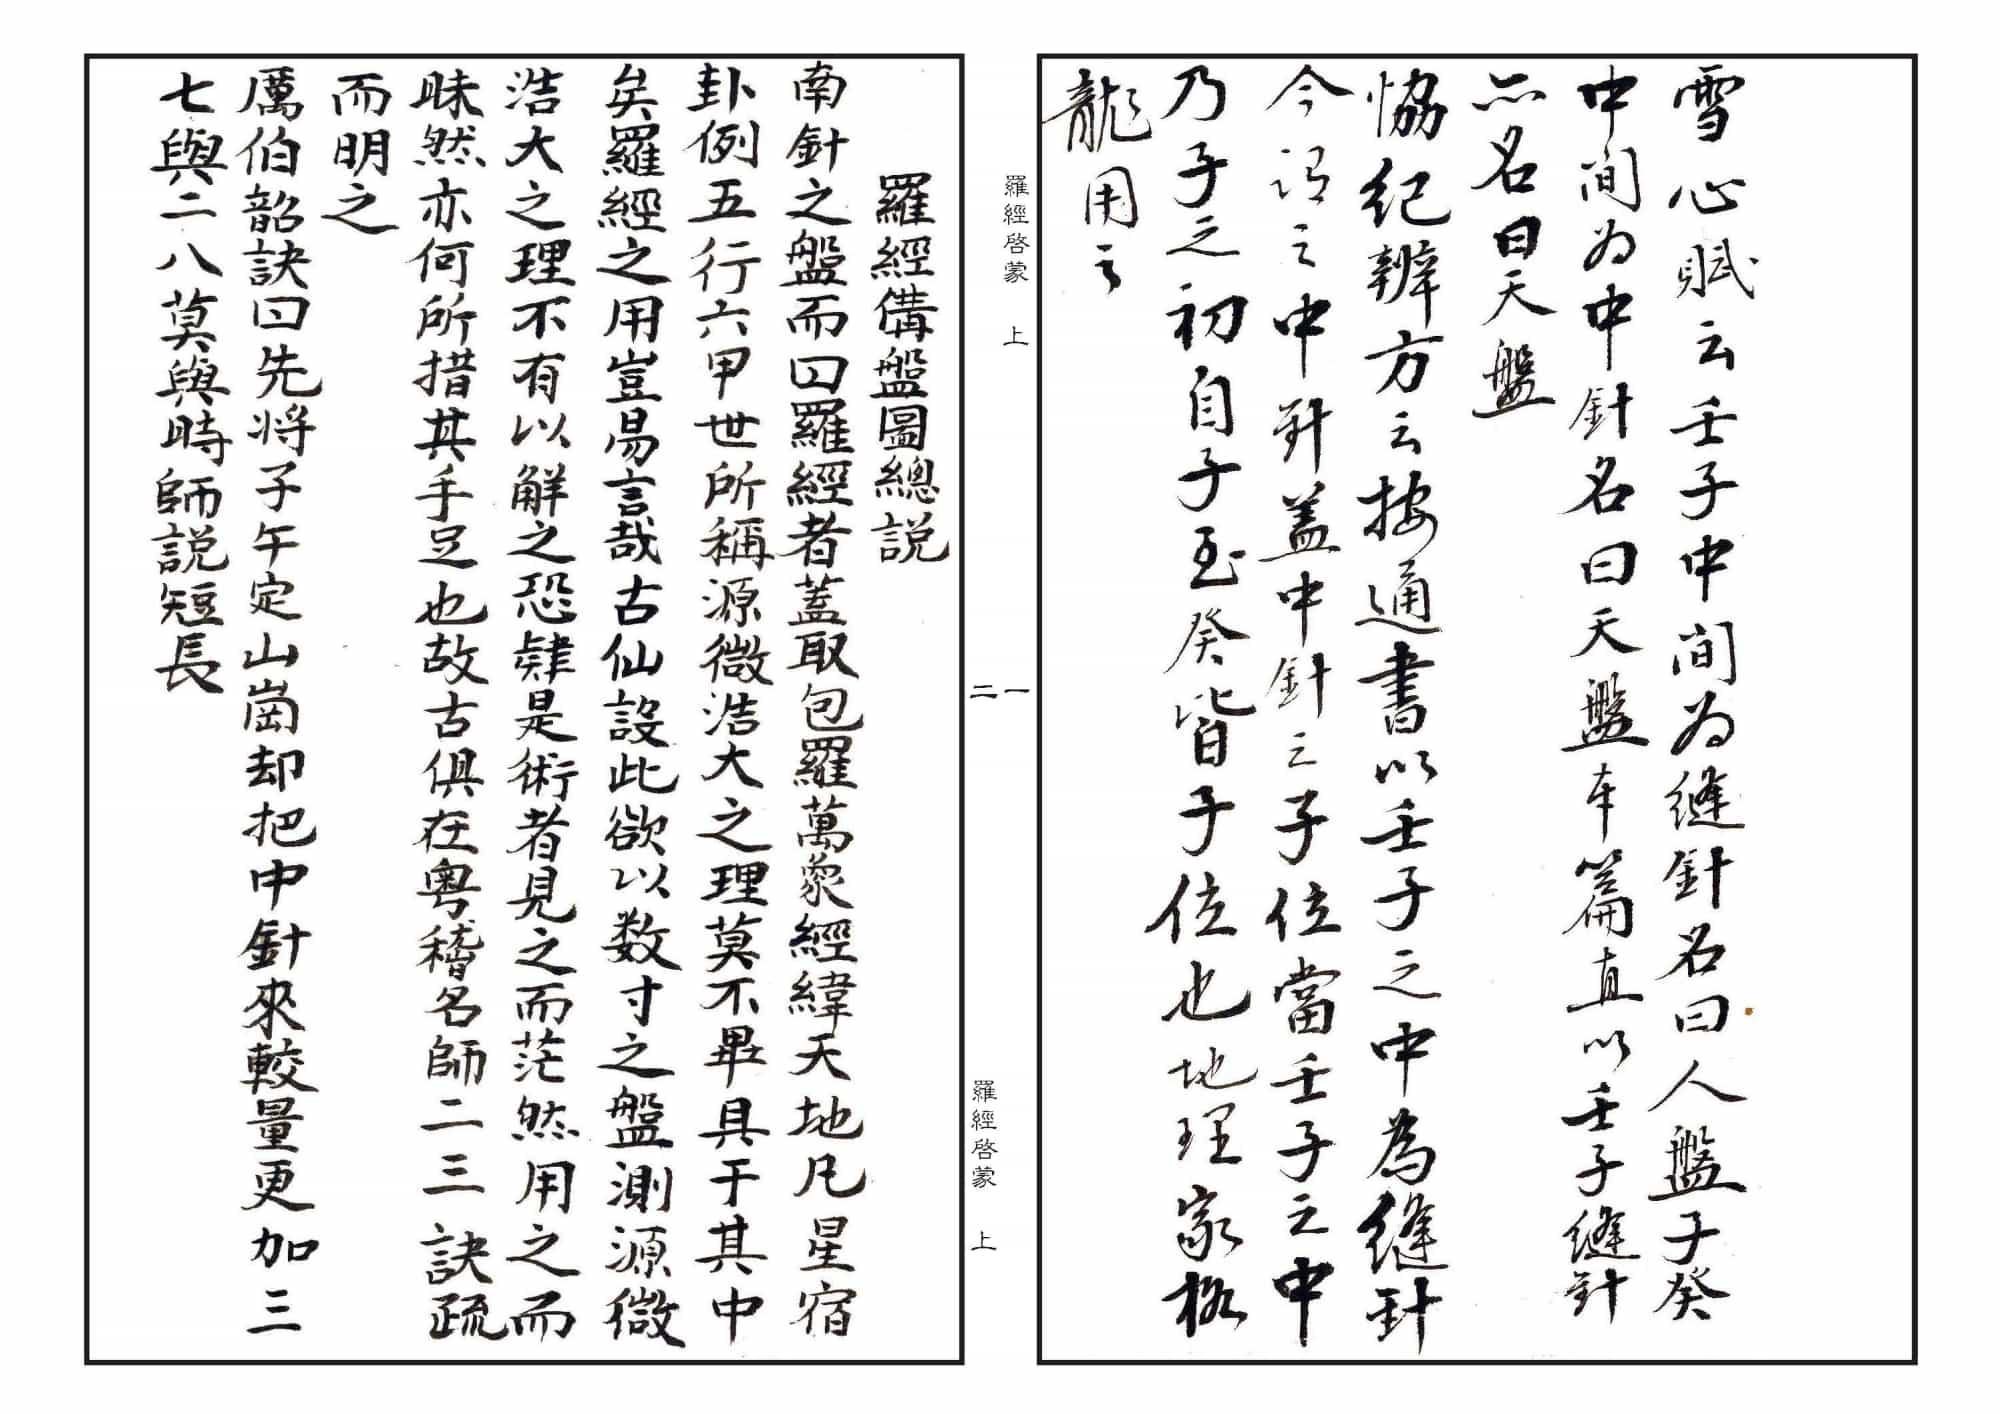 雪心賦云壬子中間為縫針名曰人盤子癸
中間為中針名曰天盤本篇直以壬子縫針
亦名曰天盤
恊紀辨方云按通書以壬子之中為縫針
今謂之中針蓋中針之子位當壬子之中
乃子之初自子至癸皆子位也地理家格
龍用之
羅經啓蒙 上
一
羅經備盤圖總説
南針之盤而曰羅經者蓋取包羅萬象經緯天地凡星宿
卦例五行六甲世所稱源微浩大之理莫不畢具于其中
矣羅經之用豈易言哉古仙設此欲以数寸之盤測源微
浩大之理不有以解之恐肄是術者見之而茫然用之而
昧然亦何所措其手足也故古俱在粤稽名師二三訣疏
而明之
厲伯韶訣曰先将子午定山崗却把中針來較量更加三
七與二八莫與時師説短長
二
羅經啓蒙 上